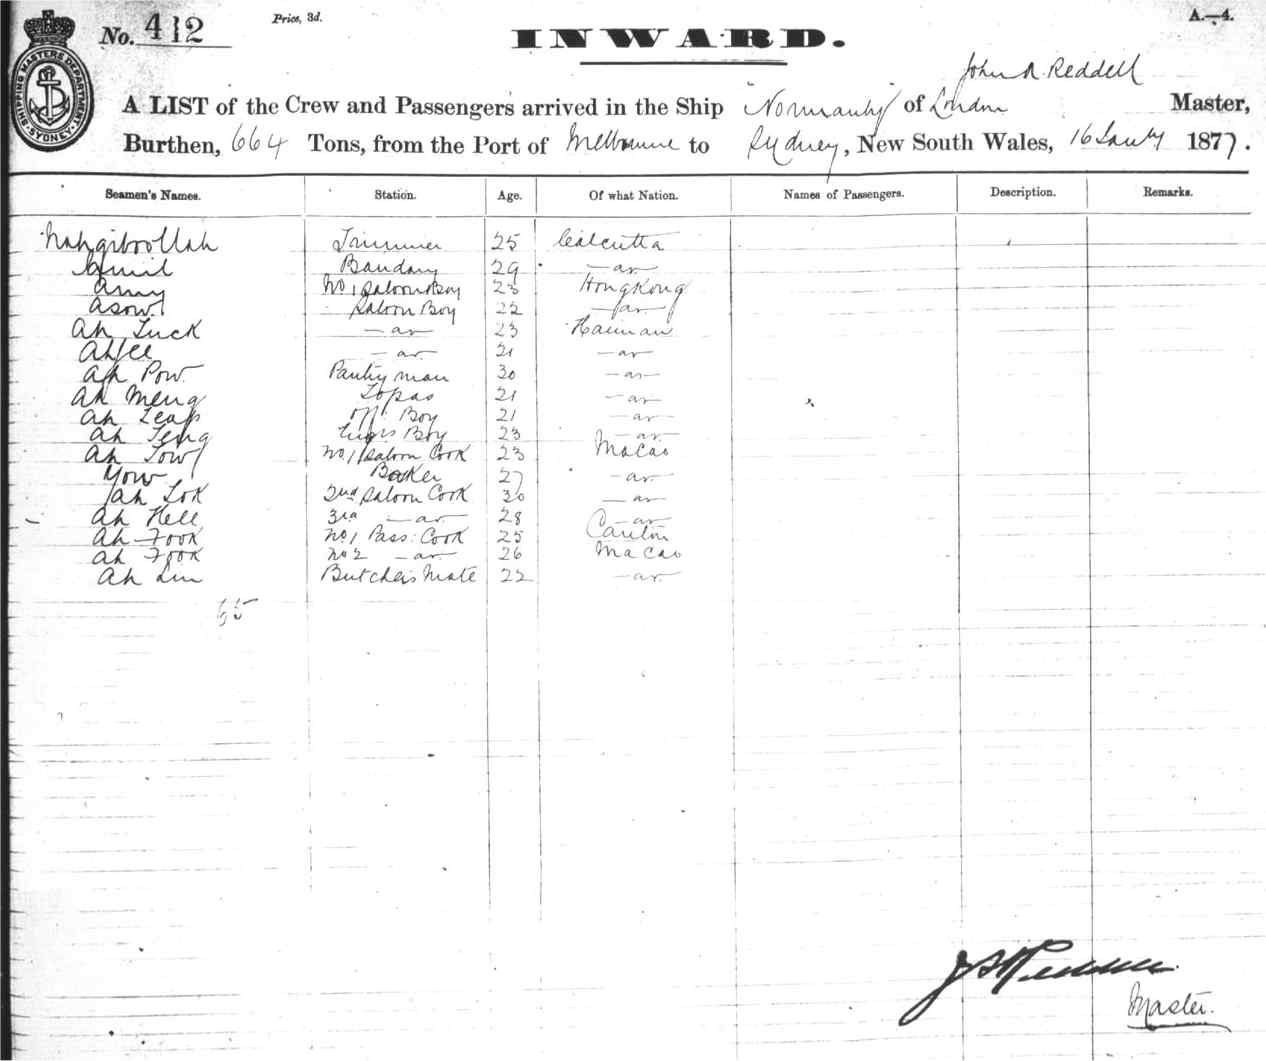 No. 412
Price, 3d.
A.—4.
INWARD.
SHIPPING MASTERS DEPARTMENT SYDNEY
John R. Reddell
A LIST of the Crew and Passengers arrived in the Ship "Normanby" of London Master,
Burthen, 664 Tons, from the Port of Melbourne to Sydney, New South Wales, 16 Jany 1877.
Seamen's Names. Station. Age. Of what Nation. Names of Passengers. Description. Remarks.
Nahgiboollah Trimmer 25 Calcutta
Bandary 29 — do —
Amy No 1 Saloon Boy 23 Hong Kong
Asow Saloon Boy 22 — do —
Ah Luck — do — 23 Hainan
— do — 21 — do —
Ah Pow Pantry man 30 — do —
Ah Meng Topas 21 — do —
Ah Leap Off. Boy 21 — do —
Ah Teng Engrs Boy 23 — do —
Ah Tow No 1 Saloon Cook 23 Macao
Yow Baker 27 — do —
Ah Lok 2nd Saloon Cook 30 — do —
Ah Hell 3rd — do — 28 — do —
Ah Fook No 1 Pass: Cook 25 Canton
Ah Fook No 2 — do — 26 Macao
Ah Lin Butchers Mate 22 — do —
65
Master.